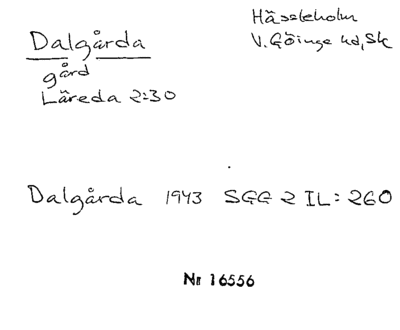 Dalgårda
gård
Läreda 2:30
Hässleholm
V. Göinge hd, Sk
Dalgårda 1943 SGG 2 IL: 260
Nr 16556